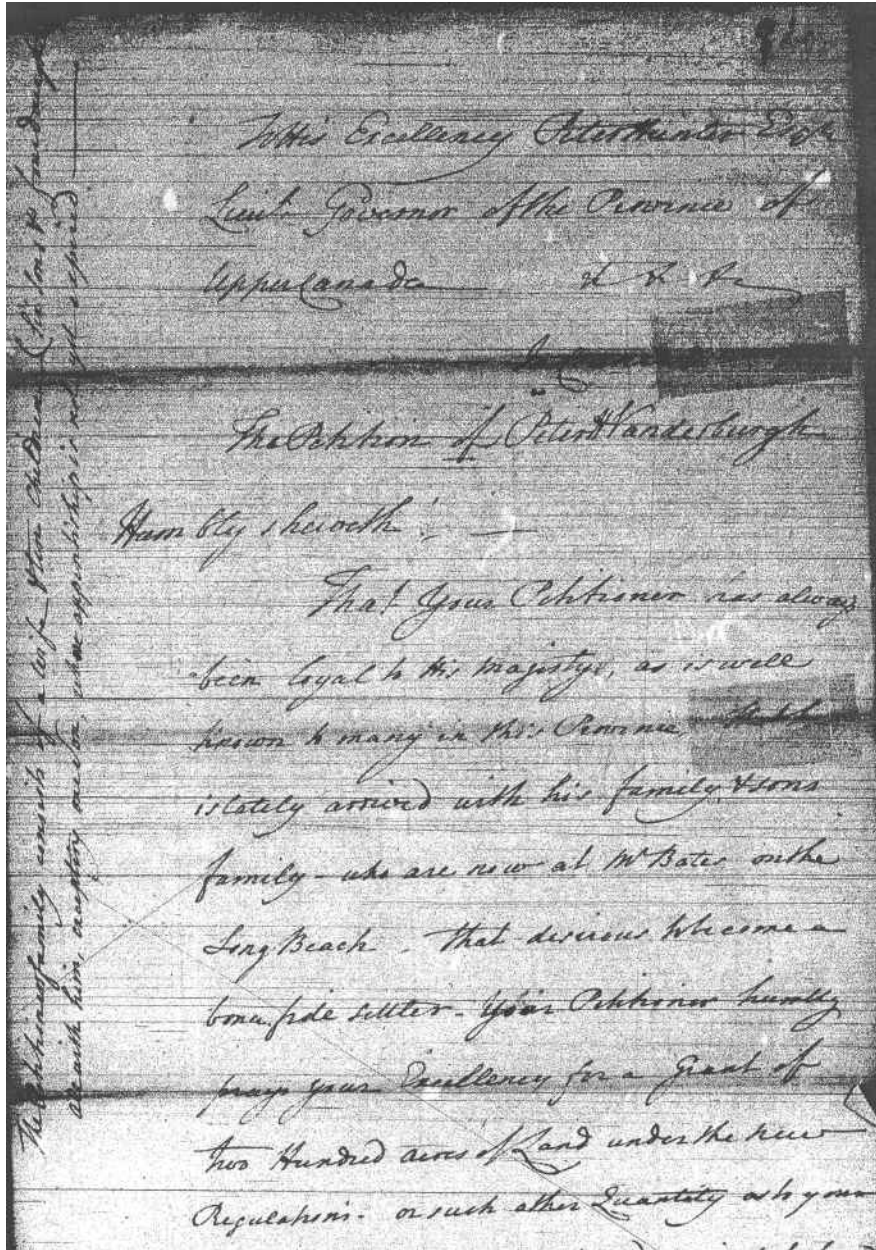 To His Excellency Peter Hunter Esqr
Lieut. Governor of the Province of
Upper Canada &c &c &c
In
The Petition of Peter Vanderburgh
Humbly sheweth! —
That Your Petitioner has always
been loyal to His Majesty, as is well
known to many in this Province,
is lately arrived with his family & sons
family - who are now at Mr Bates on the
Long Beach - That desirous to become a
bona fide settler - Your Petitioner humbly
prays your Excellency for a Grant of
two Hundred acres of Land under the new
Regulations - or such other Quantity as to your
The Petitioners family consists of a wife & ten children (six sons &
are with him, excepting one son, whose apprentiship is not yet expired